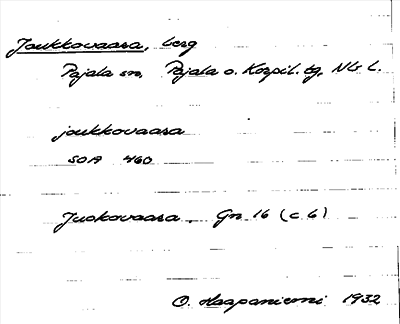 Joukkovaara, berg
Pajala sn, Pajala o. Korpil. tg, Nb L.
joukkovaara
SOA 460
Juokovaara. Gn 16 (c 6)
O. Haapaniemi 1932